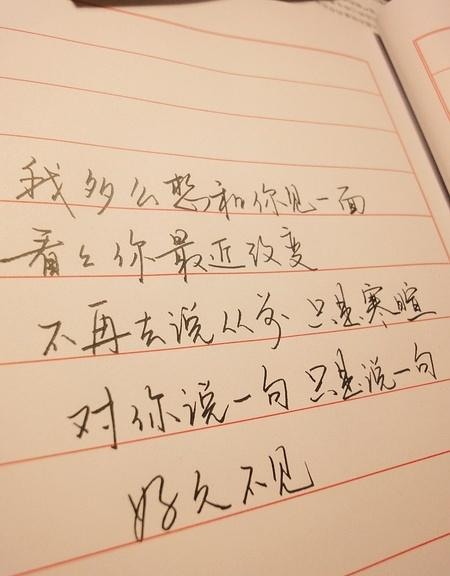 我多么想和你见一面
看看你最近改变
不再去说从前 只是寒暄
对你说一句 只是说一句
好久不见